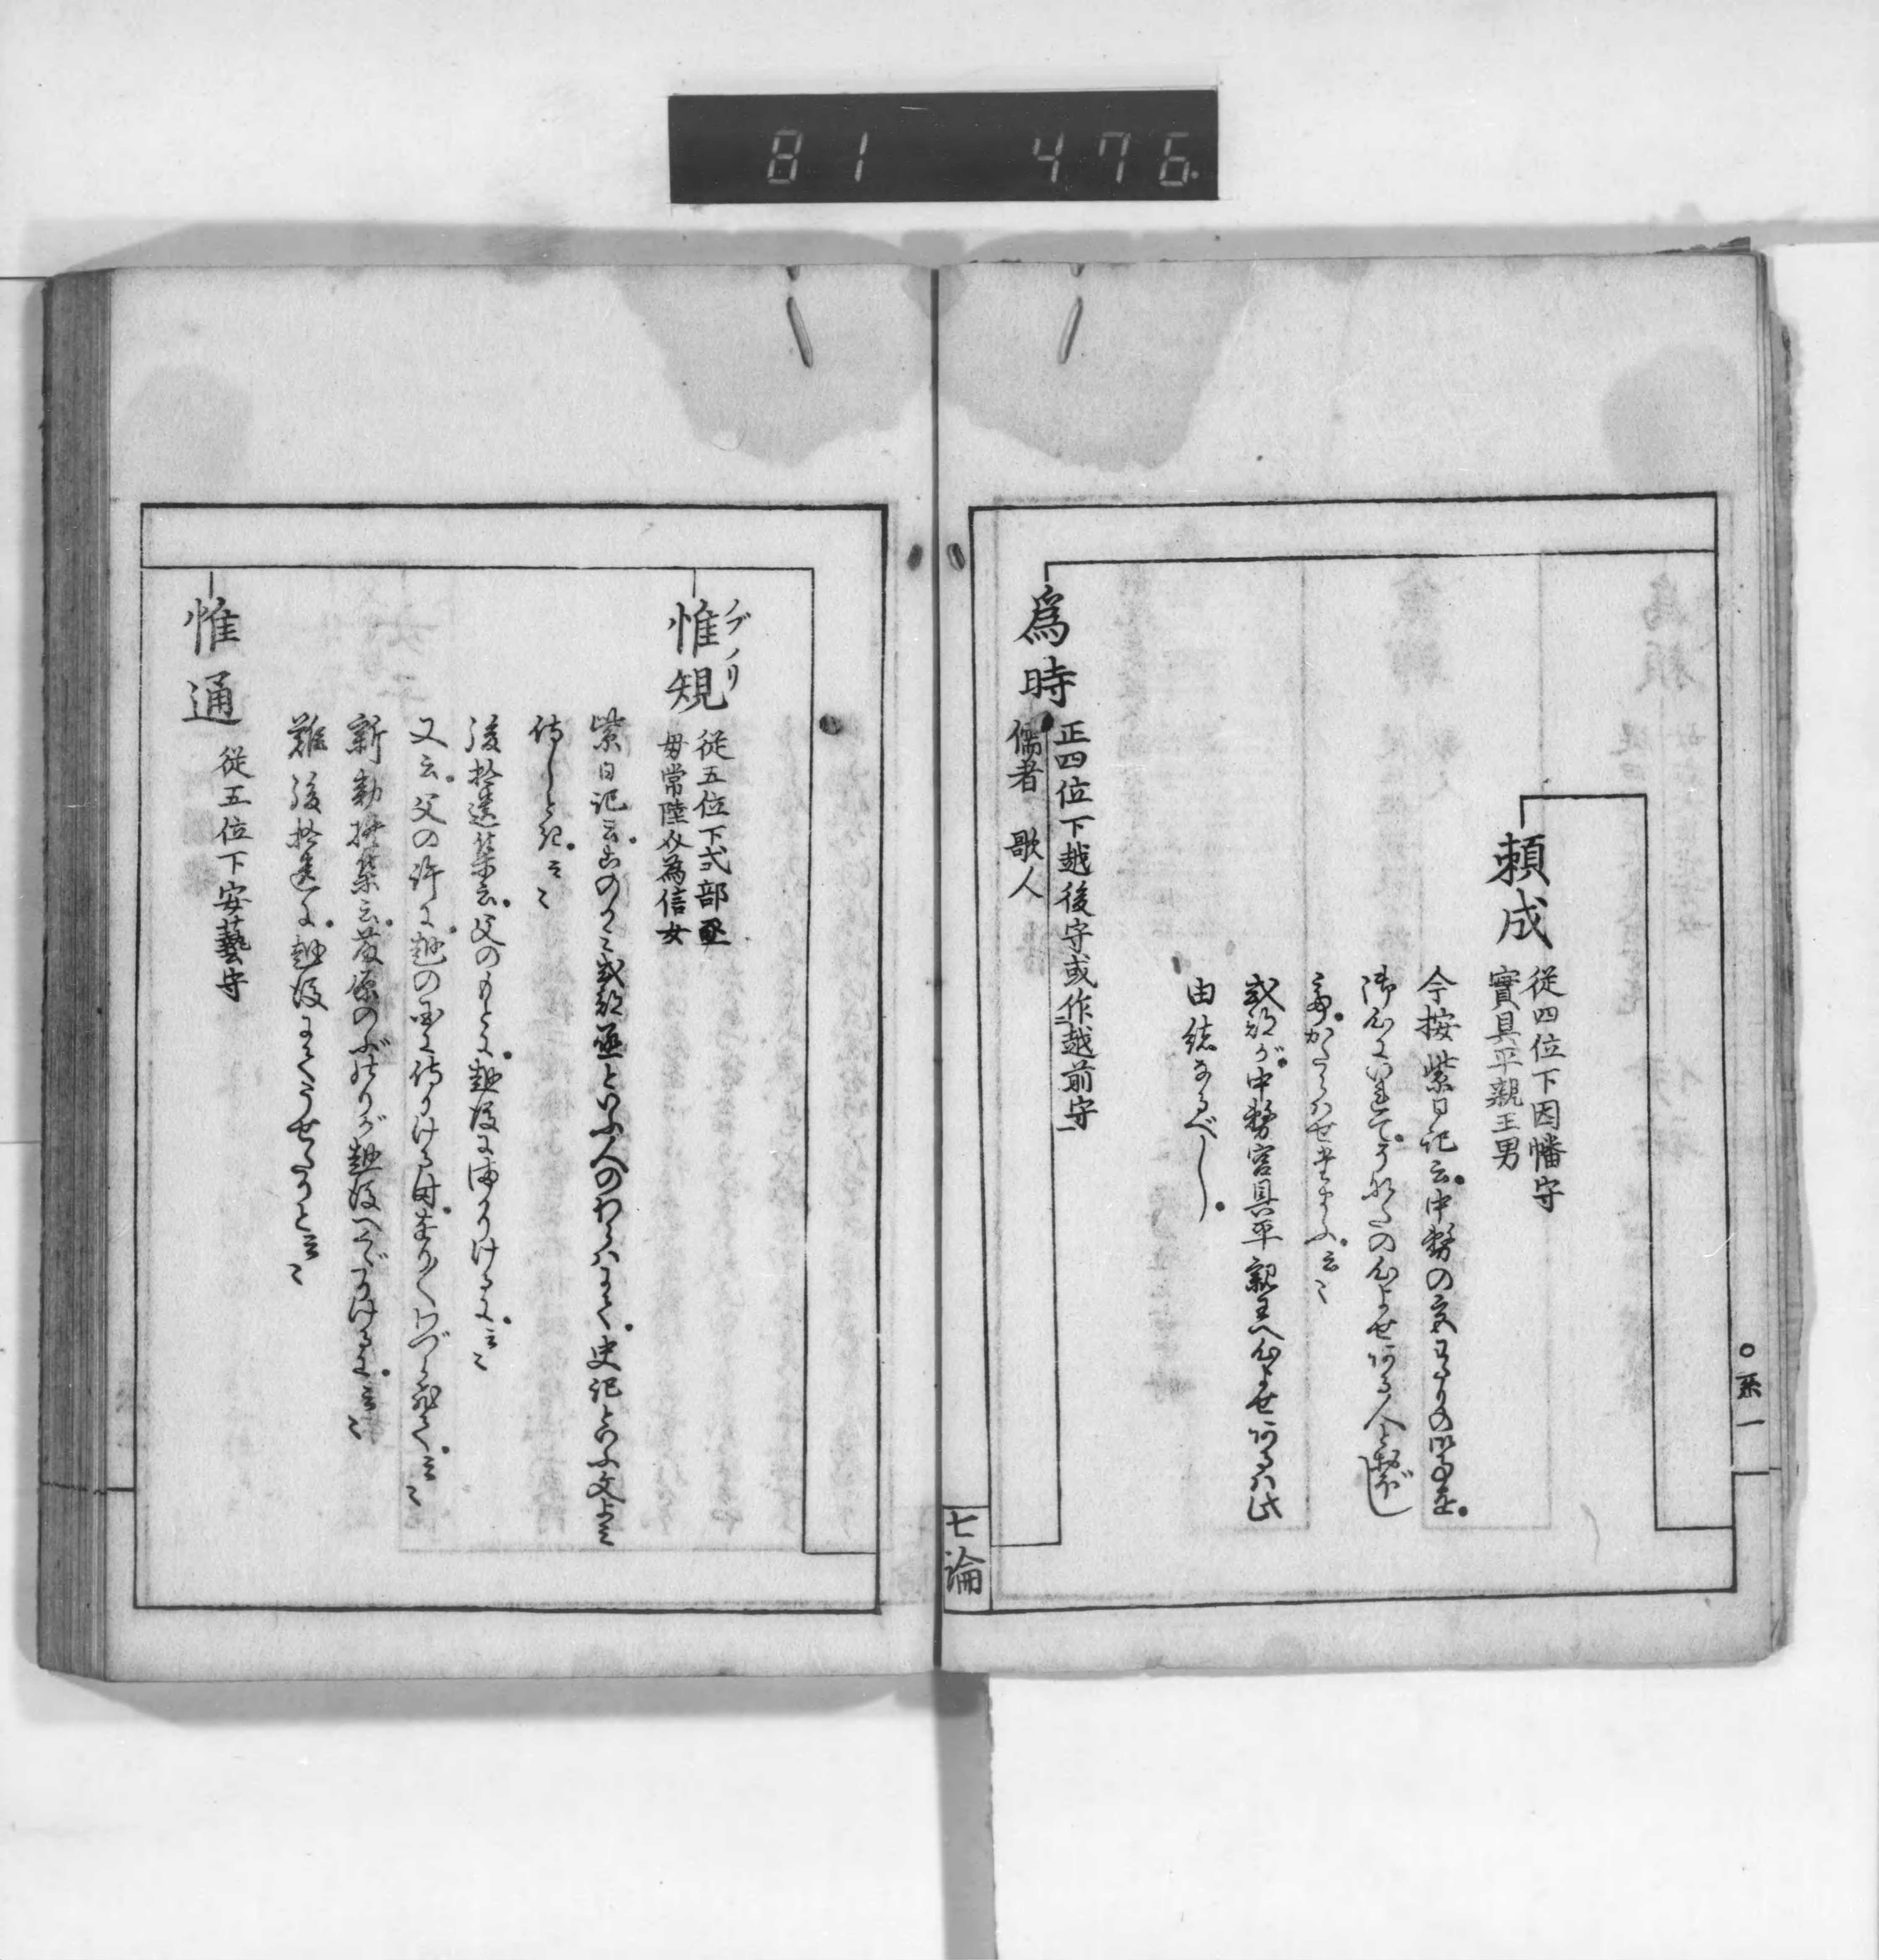 81 476
○系一
頼成
従四位下因幡守
實具平親王男
今按紫日記云。中務の宮わたりの御事を。
御心にいれて。そなたの心よせある人とおぼし
て。かたらはせたまふ。云〻
式部が。中務宮具平親王へ心よせあるハ此
由緒なるべし。
爲時
正四位下越後守或作越前守
儒者 歌人
七論
惟規
ノブノリ
従五位下式部丞
母常陸介為信女
紫日記云。このかミ式部丞といふ人のわらハにて。史記といふ文よミ
侍しとき。云〻
後拾遺集云。父のもとに。越後にまかりけるに。云〻
又云。父の許に。越の国に侍りける時。おもくわづらひて。云〻
新勅撰集云。藤原のぶのりが越後へくだりけるに。云〻
難後拾遺に。越後にてうせたりと云〻
惟通
従五位下安藝守